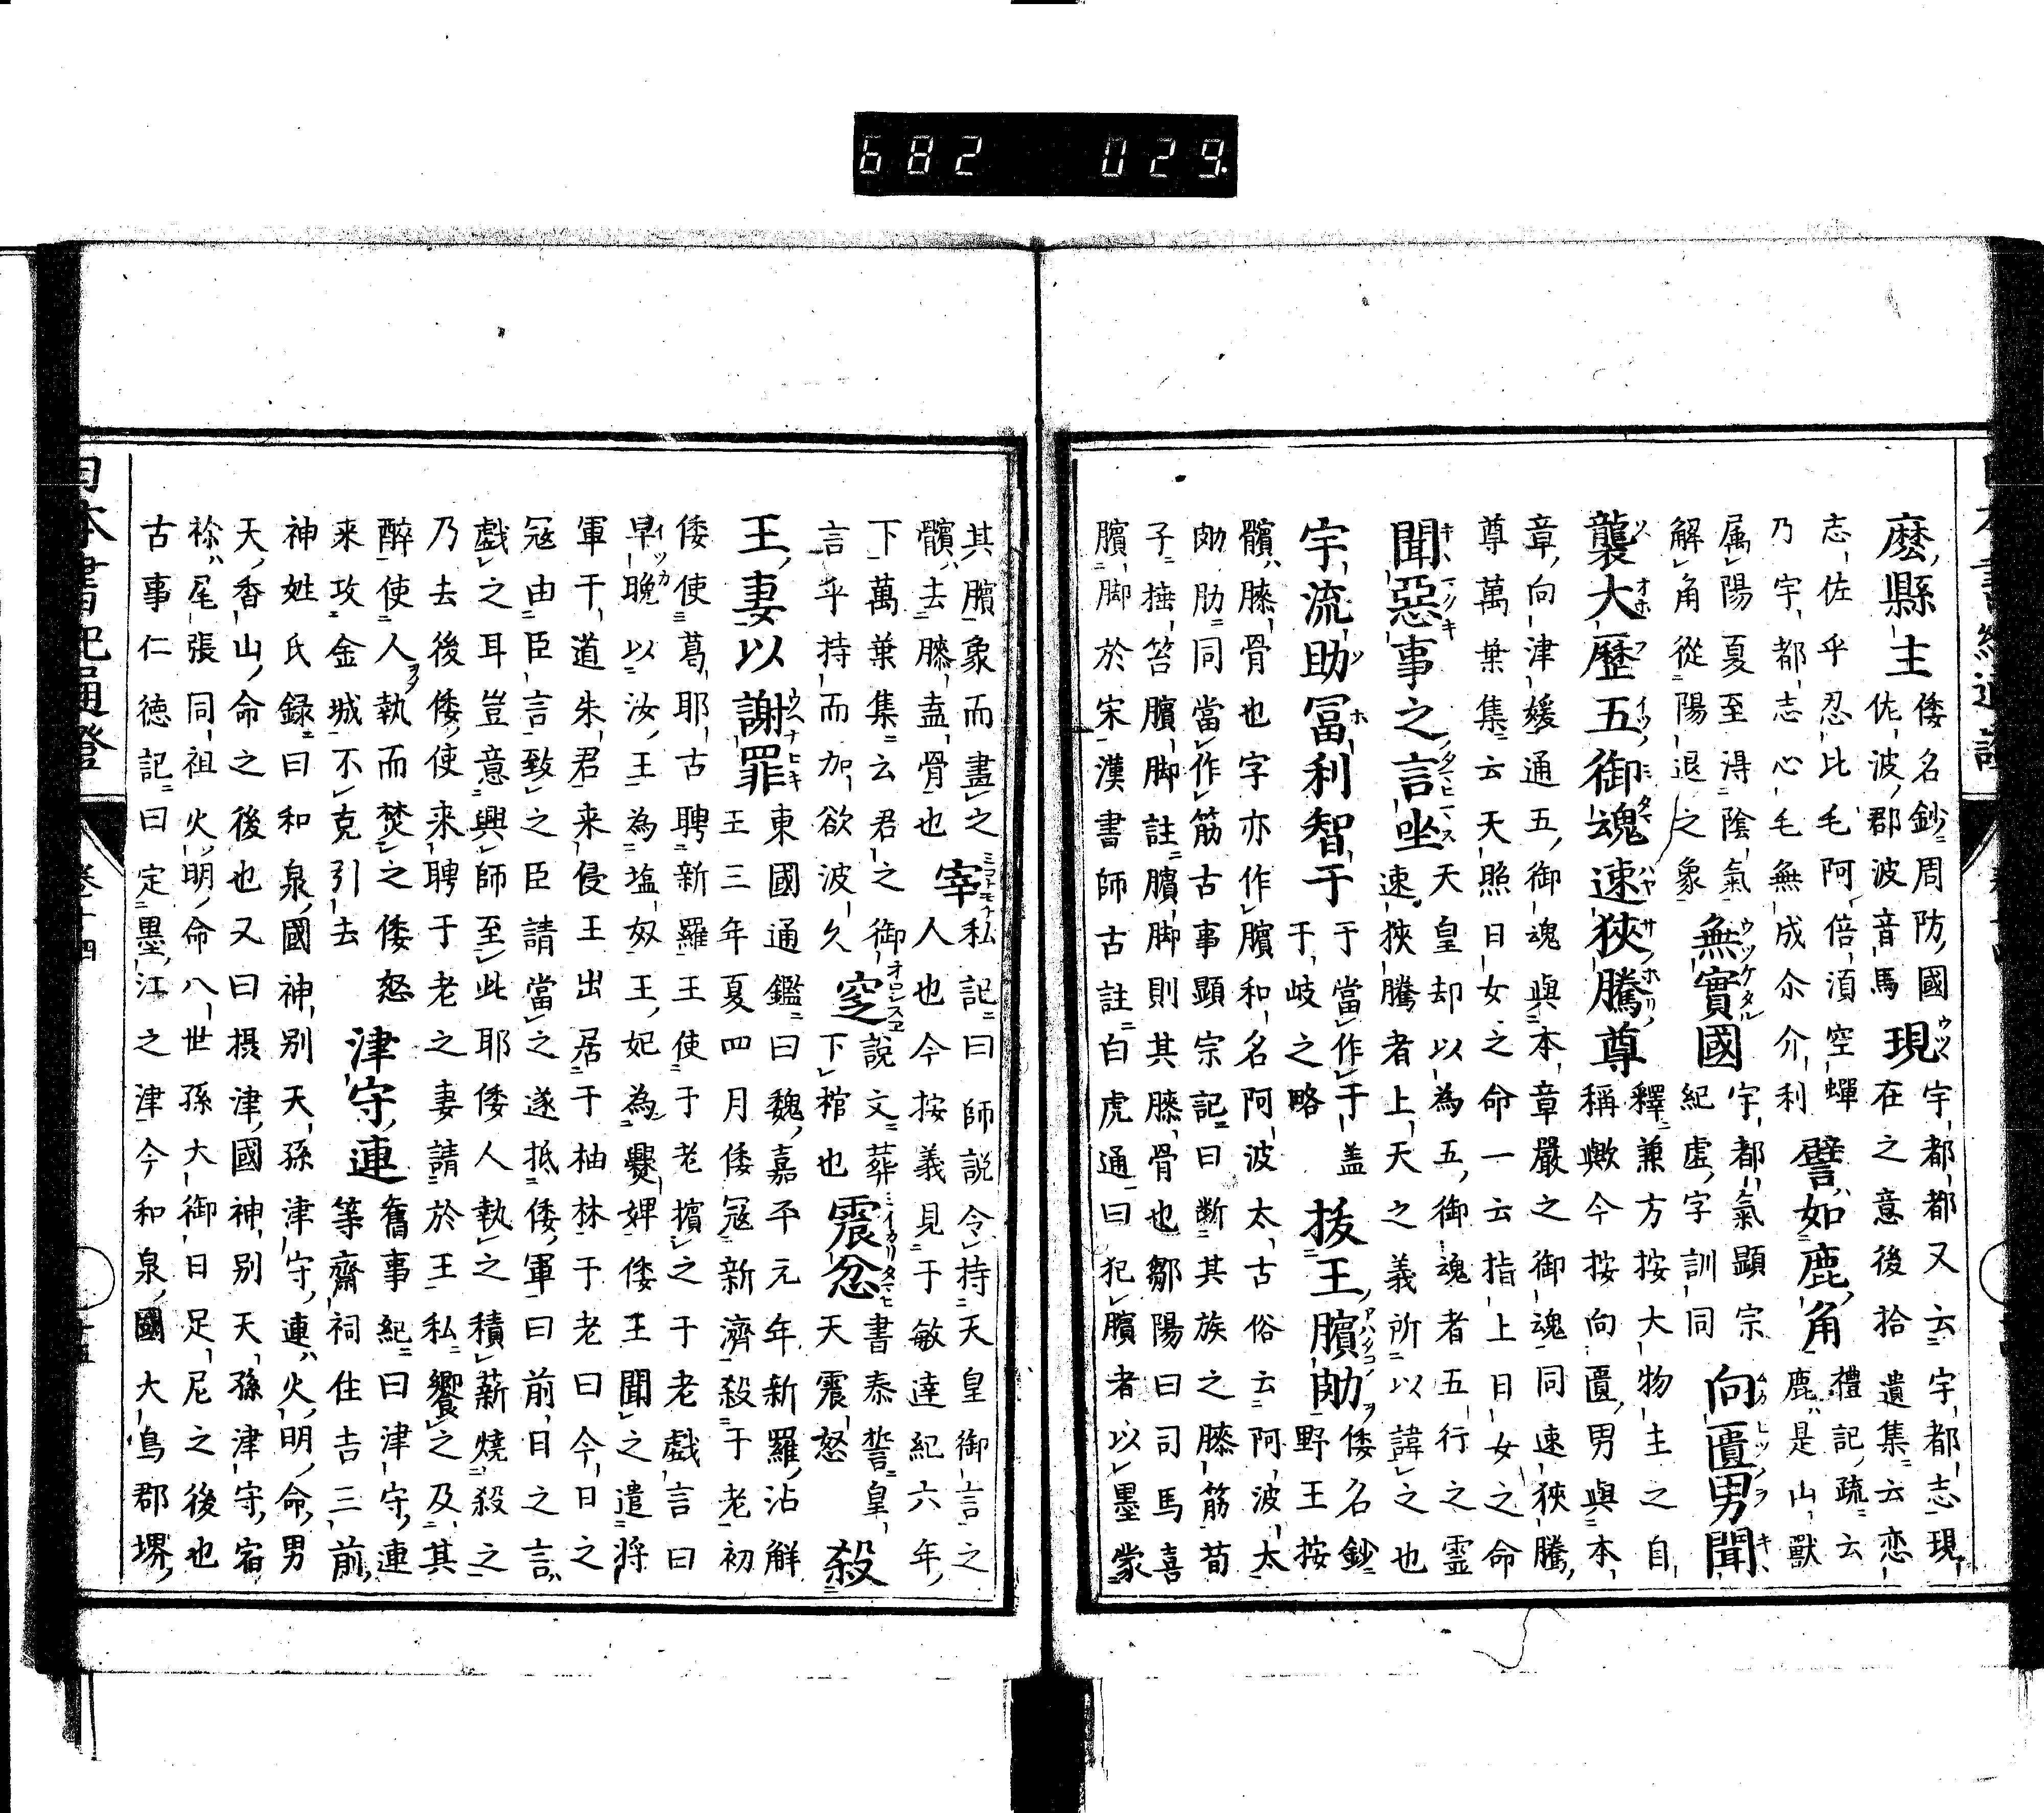 682 029
麼縣主倭名鈔周防國
佐波郡波音馬現在之意後拾遺集云恋
宇都都又云宇都志現
志佐乎忍比毛阿倍湏空蟬
乃宇都志心毛無成尒介利譬如鹿角禮記疏云
鹿是山獸
属陽夏至得陰氣
解角從陽退之象無實國宇都氣顯宗
紀虛字訓同向匱男聞
襲大歷五御魂速狹騰尊釋兼方按大物主之自
稱歟今按向匱男與本
章向津媛通五御魂與本章嚴之御魂同速狹騰
尊萬葉集云天照日女之命一云指上日女之命
聞惡事之言坐天皇却以為五御魂者五行之霊
速狹騰者上天之義所以諱之也
宇流助冨利智干于當作干盖
干岐之略拔王臏肋倭名鈔
野王按
髕膝骨也字亦作臏和名阿波太古俗云阿波太
肋肋同當作筋古事顯宗記曰断其族之膝筋荀
子捶笞臏脚註臏脚則其膝骨也鄒陽曰司馬喜
臏脚於宋漢書師古註白虎通曰犯臏者以墨蒙
其臏象而畫之
髕去膝盍骨也宰人私記曰師説令持天皇御言之
人也今按義見于敏達紀六年
下萬葉集云君之御
言乎持而加欲波久窆説文葬
下棺也震忿書泰誓皇
天震怒殺
王妻以謝罪東國通鑑曰魏嘉平元年新羅沾觧
王三年夏四月倭冦新濟殺于老初
倭使葛耶古聘新羅王使于老擯之于老戲言曰
早晚以汝王為塩奴王妃為爨婢倭王聞之遣将
軍干道朱君来侵王出居于柚林于老曰今日之
冦由臣言致之臣請當之遂抵倭軍曰前日之言
戲之耳豈意興師至此耶倭人執之積薪燒殺之
乃去後倭使来聘于老之妻請於王私饗之及其
醉使人執而焚之倭怒
来攻金城不克引去津守連舊事紀曰津守連
等齋祠住吉三前
神姓氏録曰和泉國神別天孫津守連火明命男
天香山命之後也又曰摂津國神別天孫津守宿
祢尾張同祖火明命八世孫大御日足尼之後也
古事仁徳記曰定墨江之津今和泉國大鳥郡堺
日本書紀通證 卷十四